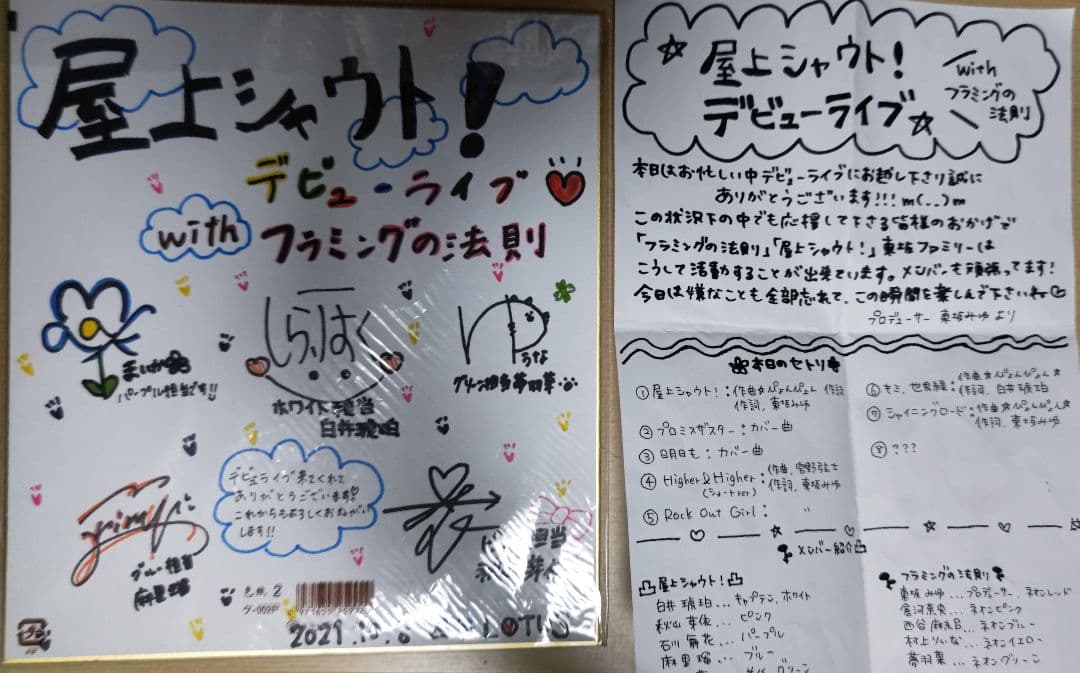 屋上シャウト!
デビューライブ
with フラミングの法則
まいか
パープル担当です!!
しらはく
ホワイト担当
白井琥珀
ゆうな
グリーン担当夢羽菜
ブルー担当
麻里瑠
デビュライブ来てくれて
ありがとうございます!
これからもよろしくおねがい
します!!
担当
色紙 2
2021.10.6
屋上シャウト!
デビューライブ
with
フラミングの
法則
本日はお忙しい中デビューライブにお越し下さり誠に
ありがとうございます!!! m(..)m
この状況下の中でも応援して下さる皆様のおかげで
「フラミングの法則」「屋上シャウト!」東坂ファミリーは
こうして活動することが出来ています。メンバーも頑張ってます!
今日は嫌なことも全部忘れて、この瞬間を楽しんで下さいね♡
プロデューサー 東坂みゆ より
本日のセトリ
① 屋上シャウト!:作曲☆ぴょんぴょん 作詞
作詞、東坂みゆ
② プロミスザスター:カバー曲
③ 明日も:カバー曲
④ Higher&Higher:作曲,宮野弦士
(ショートver) 作詞、東坂みゆ
⑤ Rock Out Girl: 〃
⑥ キミ、世界線:作曲☆ぴょんぴょん☆
作詞、白井琥珀
⑦ シャイニングロード:作曲☆ぴょんぴょん☆
作詞、東坂みゆ
⑧ ???
メンバー紹介
屋上シャウト!
白井 琥珀...キャプテン、ホワイト
秋山 芽依...ピンク
石川 舞花...パープル
麻里瑠...ブルー
グリーン
フラミングの法則
東坂 みゆ...プロデューサー、ネオンレッド
倉河菜央...ネオンピンク
西谷 麻糸B...ネオンブルー
村上りいな...ネオンイエロー
夢羽菜...ネオングリーン